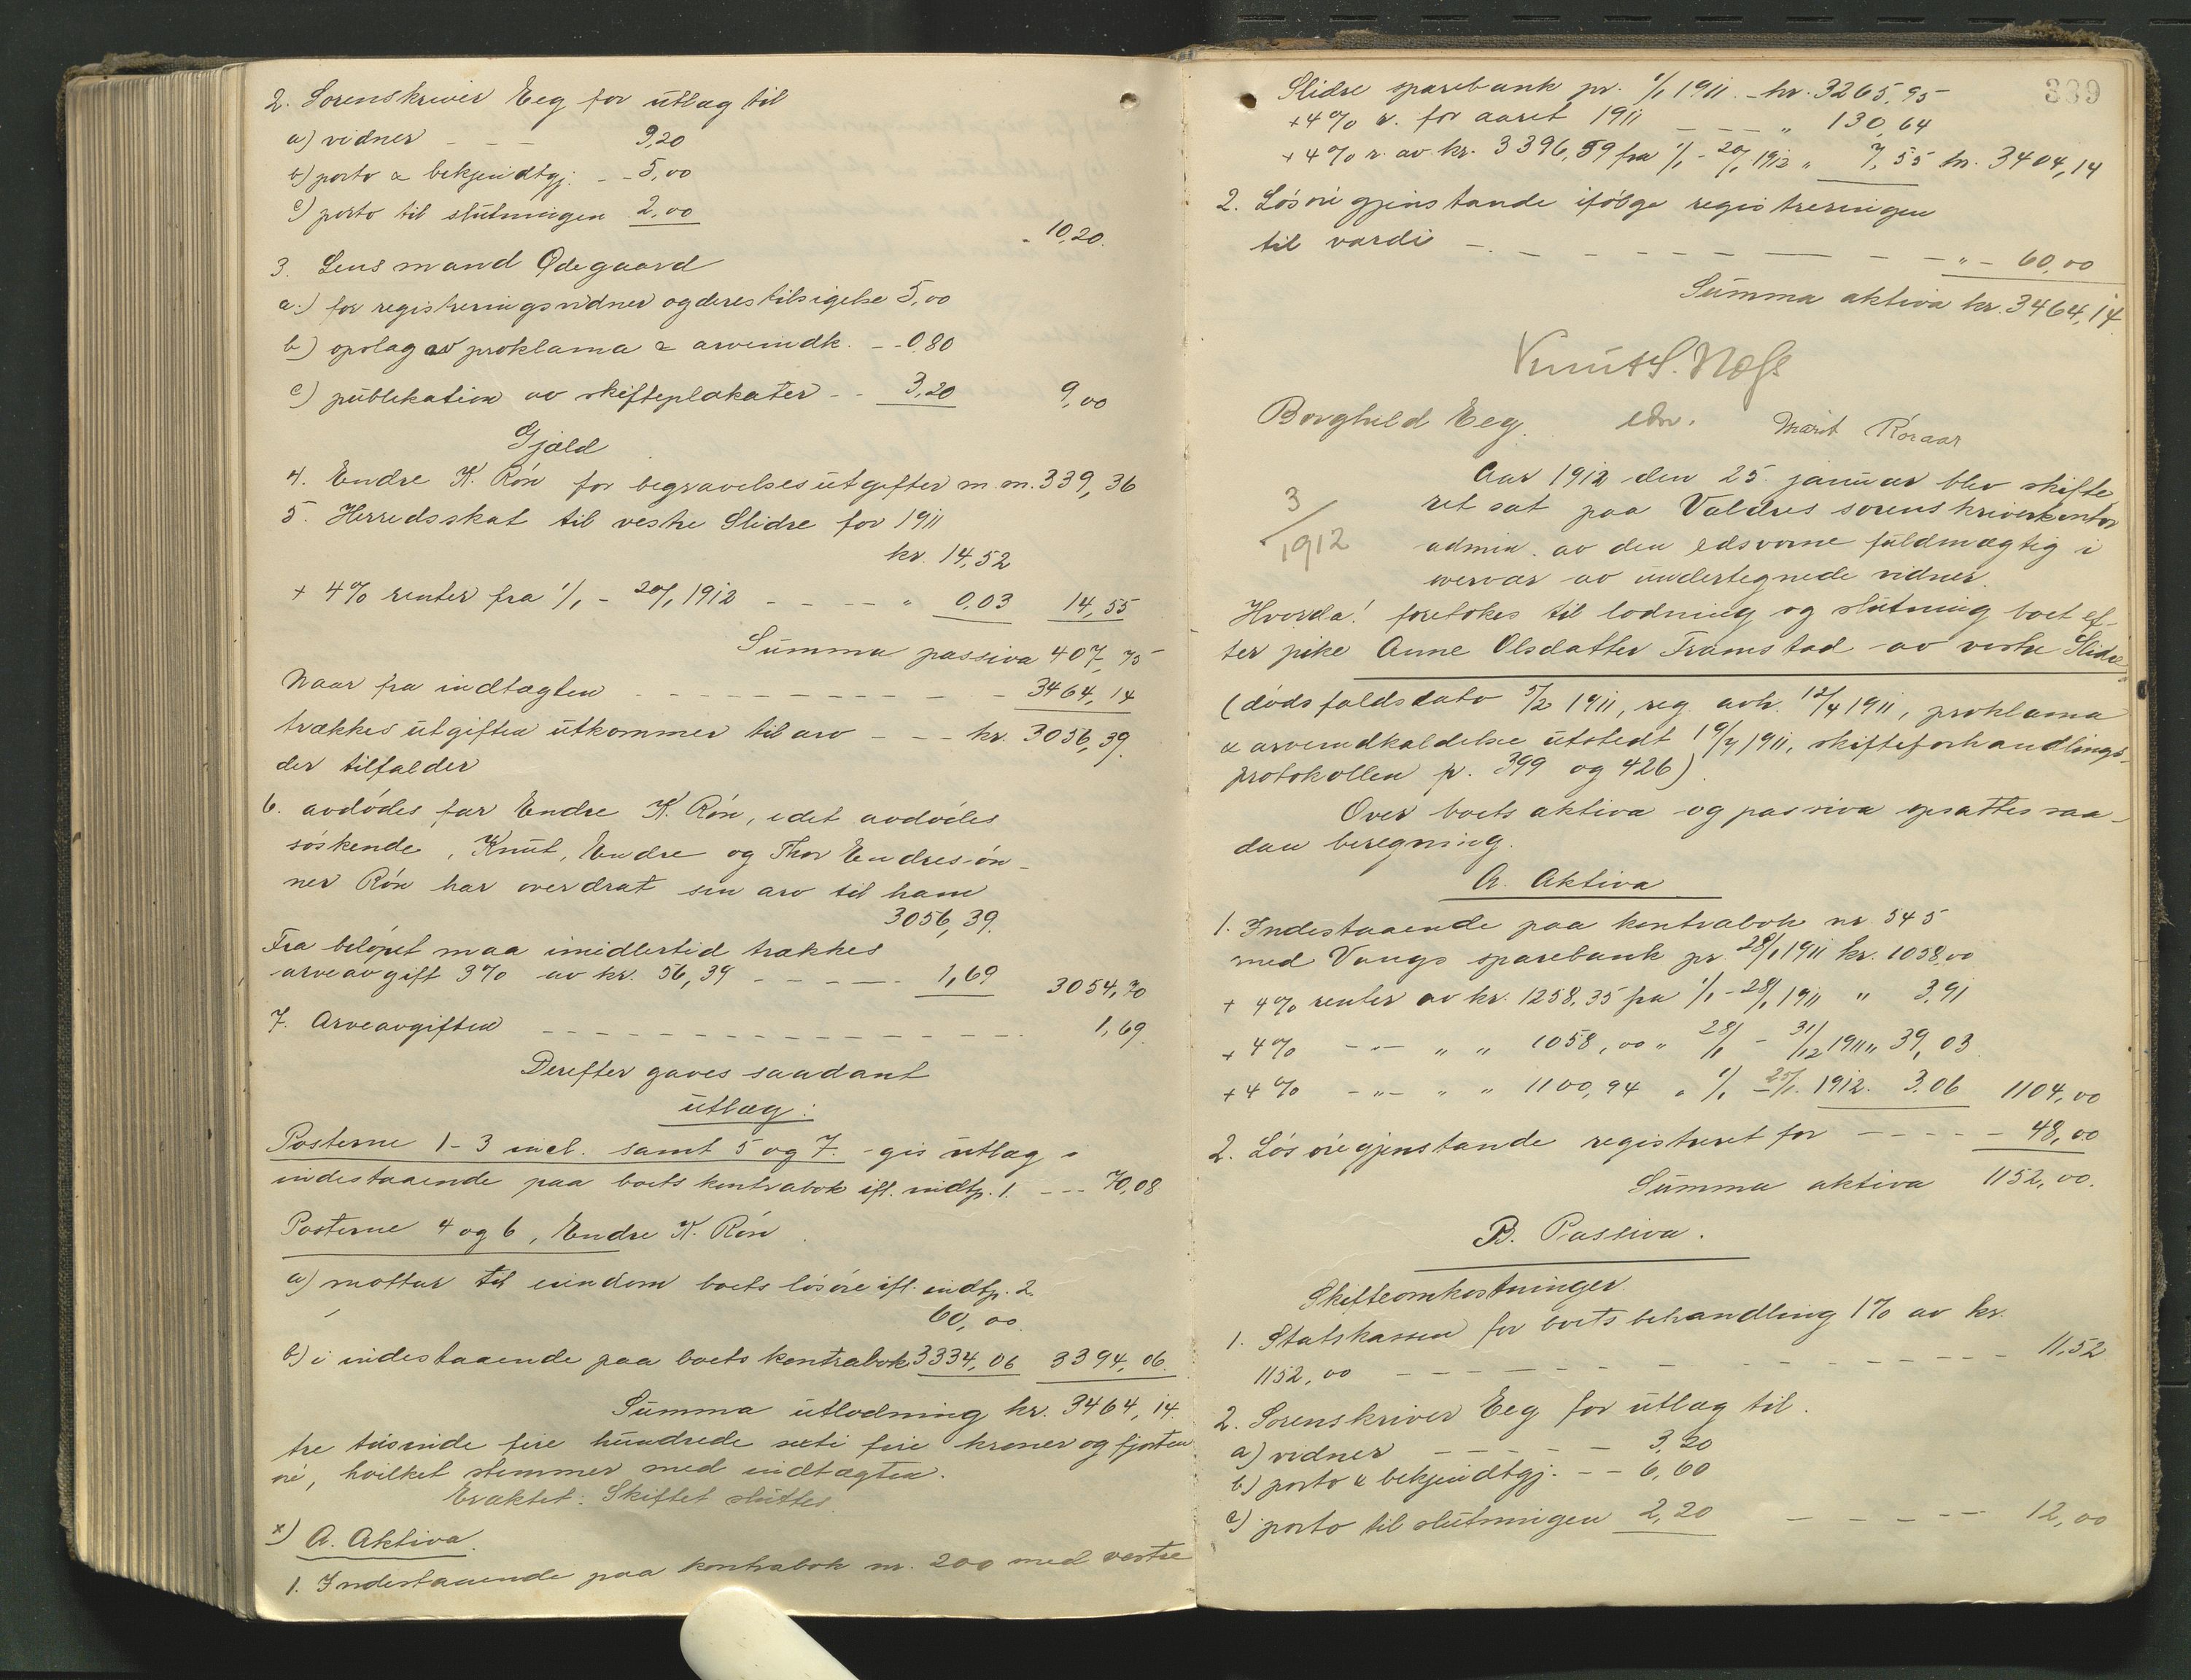 2. Sorenskriver Eeg for utlæg til
a) vidner - - - 3,20
b) porto & bekjendtgj. - - 5,00
c) porto til slutningen 2,00
" 10,20.
3. Lensmand Ødegaard
a.) for registreringsvidner og deres tilsigelse 5,00
b) opslag av proklama & arveindk. - - 0,80
c) publikation av skifteplakater - - 3,20 9,00
Gjæld
4. Endre K. Røn for begravelsesutgifter m.m. 339,36
5. Herredsskat til vestre Slidre for 1911
kr. 14,52
+ 4% renter fra 1/1 - 20/1 1912 - - - - " 0,03 14,55
Summa passiva 407,75
Naar fra indtægten - - - - - - - - - - 3464,14
trækkes utgiften utkommer til arv - - - kr. 3056,39.
der tilfalder
6. avdødes far Endre K. Røn, idet avdødes
søskende, Knut, Endre og Thor Endresøn-
ner Røn har overdrat sin arv til ham
3056,39.
Fra beløpet maa imidlertid trækkes
arveavgift 3% av kr. 56,39 - - - - - 1,69 3054,70
7. Arveavgiften - - - - - - - - - - - - - 1,69.
Derefter gaves saadant
utlæg:
Posterne 1-3 incl. samt 5 og 7. gis utlæg i
indestaaende paa boets kontrabok ifl. indtp. 1. - - - 70,08
Posterne 4 og 6, Endre K. Røn
a) mottar til eiendom boets løsøre ifl. indtp. 2.
60,00.
b) i indestaaende paa boets kontrabok 3334,06 3394,06.
Summa utlodning kr. 3464,14.
tre tusinde fire hundrede seksti fire kroner og fjorten
øre, hvilket stemmer med indtægten.
Eraktet: Skiftet sluttes.
x) A. Aktiva.
1. Indestaaende paa kontrabok nr. 200 med vestre
339
Slidre sparebank pr. 1/1 1911 - kr. 3265,95
+4% r. for aaret 1911 - - - " 130,64
+4% r. av kr. 3396,59 fra 1/1 - 20/1 1912 " 7,55 kr. 3404,14
2. Løsøregjenstande ifølge registreringen
til værdi - - - - - - - - - - " - 60,00
Summa aktiva kr. 3464,14.
Borghild Eeg. edsv. Marit Roraar
3/1912
Aar 1912 den 25. januar blev skifte
ret sat paa Valdres sorenskriverkontor
admin. av den edsvorne fuldmægtig i
overvær av undertegnede vidner.
Hvorda! foretokes til lodning og slutning boet ef-
ter pike Anne Olsdatter Tramstad av vestre Slidre
(dødsfaldsdato 5/2 1911, reg. avh. 12/4 1911, proklama
& arveindkaldelse utstedt 19/4 1911, skifteforhandlings-
protokollen p. 399 og 426).
Over boets aktiva og passiva opsattes saa-
dan beregning.
A. Aktiva
1. Indestaaende paa kontrabok nr. 545
med Vangs sparebank pr. 28/1 1911 kr. 1058,00
+ 4% renter av kr. 1258,35 fra 1/1 - 28/1 1911 " 3,91
+ 4% - " - " " 1058,00 " 28/1 - 31/12 1911 " 39,03.
+ 4% - " - " " 1100,94 " 1/1 - 25/1. 1912. 3.06 1104,00
2. Løsøregjenstande registreret for - - - - - 48,00
Summa aktiva 1152,00.
B. Passiva.
Skifteomkostninger
1. Statskassen for boets behandling 1% av kr.
1152,00 - - - - - - - - - - - - 11,52
2. Sorenskriver Eeg for utlæg til.
a) vidner - - - - - 3,20
b) porto & bekjendtgj. - - 6,60
c) porto til slutningen 2,20 - - - - - 12,00